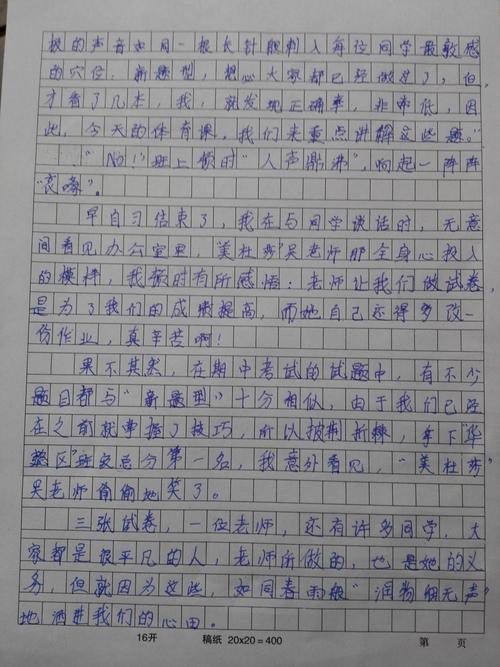 极的声音如同一根长针般刺入每位同学最敏感
的穴位.新题型,想必大家都已经做过了,但,
才看了几本,我,就发现正确率,非常低,因
此,今天的体育课,我们来重点讲解这些题。"
"NO!"班上顿时"人声鼎沸",响起一阵阵
"哀嚎"。
早自习结束了,我在与同学谈话时,无意
间看见办公室里,"美杜莎"吴老师那全身心投入
的模样,我顿时有所感悟:老师让我们做试卷,
是为了我们的成绩提高,而她自己还得多改一
份作业,真辛苦啊!
果不其然,在期中考试的试题中,有不少
题目都与"新题型"十分相似,由于我们已经
在之前就掌握了技巧,所以披荆折棘,拿下"华
整区"班级总分第一名,我意外看见,"美杜莎"
吴老师偷偷地笑了。
三张试卷,一位老师,还有许多同学,大
家都是很平凡的人,老师所做的,也是她的义
务,但就因为这些,如同春雨般"润物细无声"
地洒进我们的心田。
16开 稿纸 20x20=400 第 页